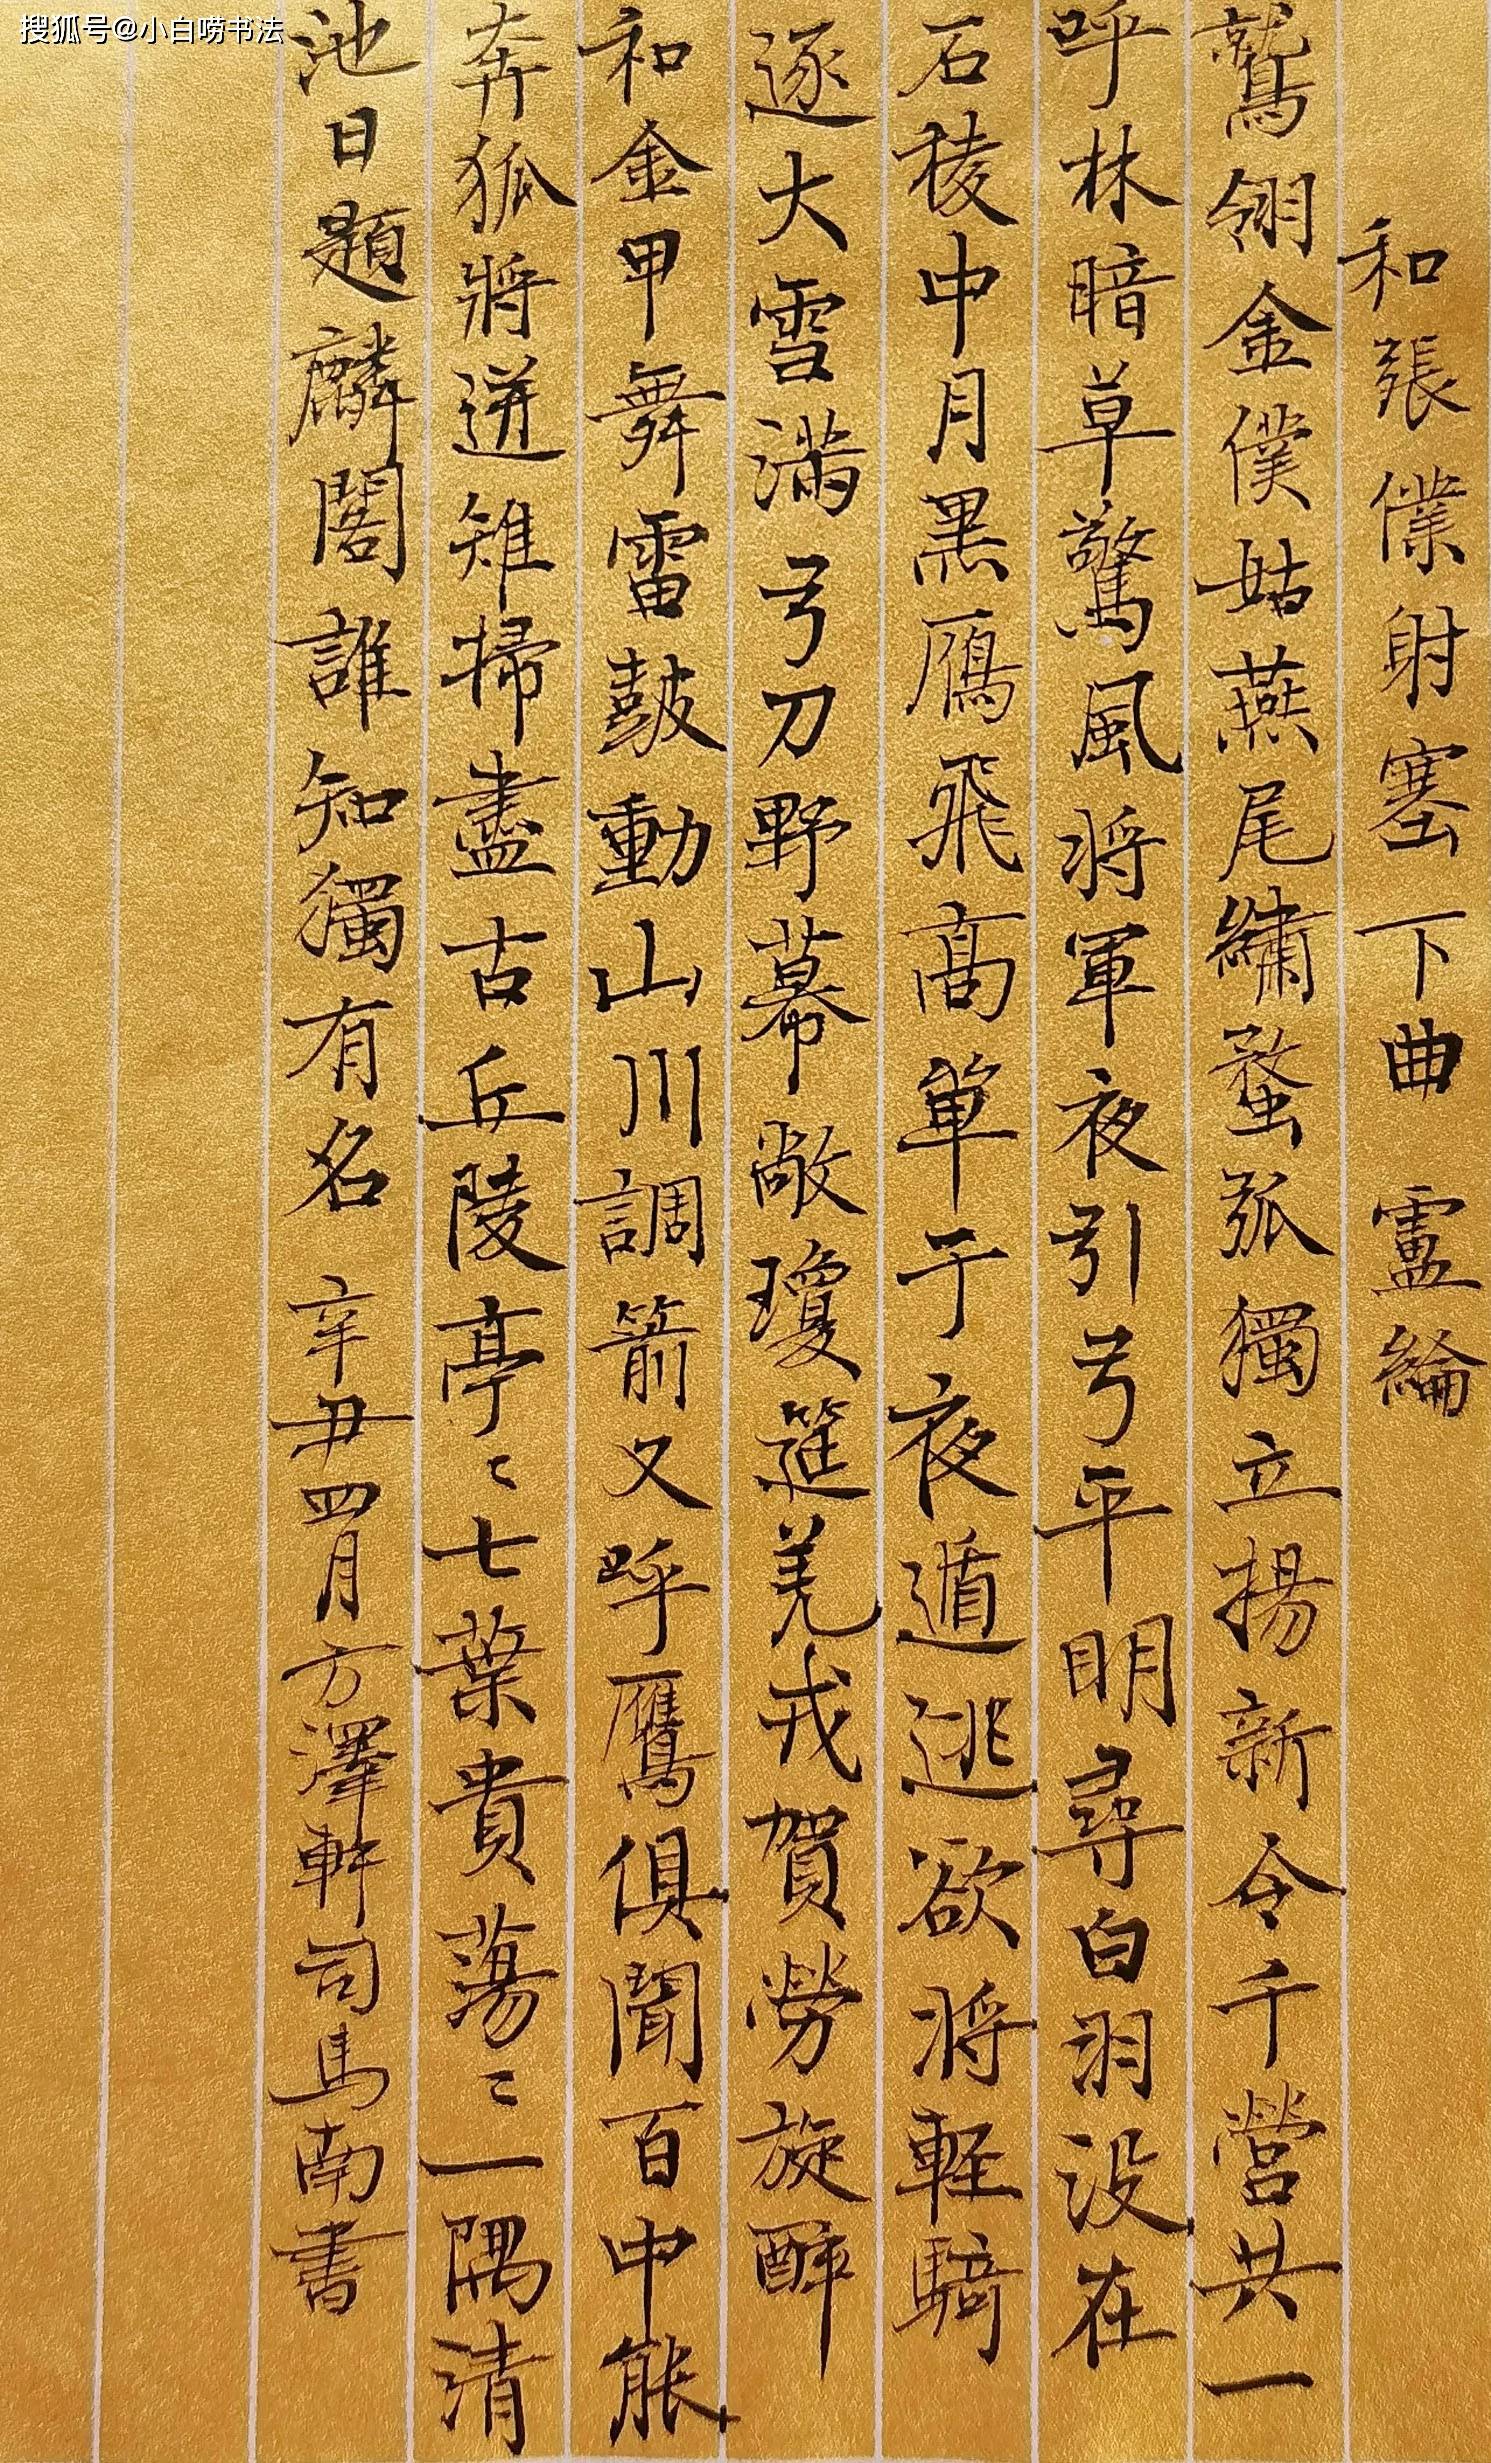 搜狐号@小白唠书法
和張僕射塞下曲 盧綸
鷲翎金僕姑燕尾繡蝥弧獨立揚新令千營共一
呼林暗草驚風將軍夜引弓平明尋白羽没在
石稜中月黑鴈飛高單于夜遁逃欲將輕騎
逐大雪滿弓刀野幕敞瓊筵羌戎賀勞旋醉
和金甲舞雷鼓動山川調箭又呼鷹俱聞百中能
奔狐將迸雉掃盡古丘陵亭〻七葉貴蕩〻一隅清
池日題麟閣誰知獨有名 辛丑四月方澤軒司馬南書